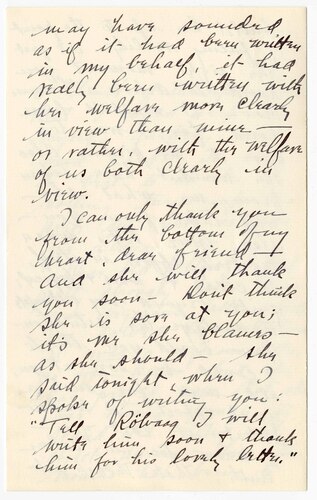 may have sounded
as if it had been written
in my behalf, it had
really been written with
her welfare more clearly
in view than mine —
or rather, with the welfare
of us both clearly in
view.
I can only thank you
from the bottom of my
heart, dear friend —
And she will thank
you soon — Don't think
she is sore at you;
it's me she blames —
as she should — she
said tonight, when I
spoke of writing you:
"Tell Rölvaag I will
write him soon & thank
him for his lovely letter."